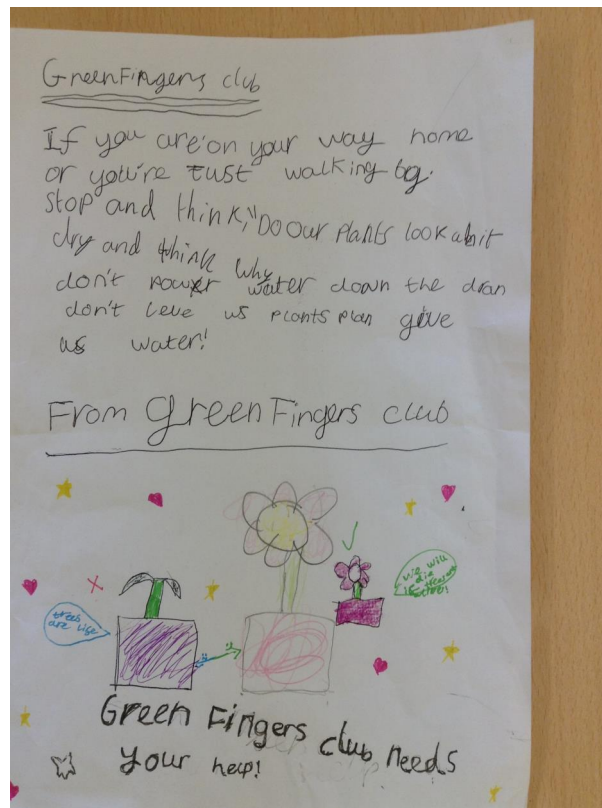 Green Fingers club
If you are on your way home
or you're Just walking by.
Stop and think, "Do our plants look a bit
dry and think why
don't power water down the dran
don't leve us plants plan give
us water!
From green Fingers club
trees
are life
we will
die
if
Green Fingers club needs
your help!